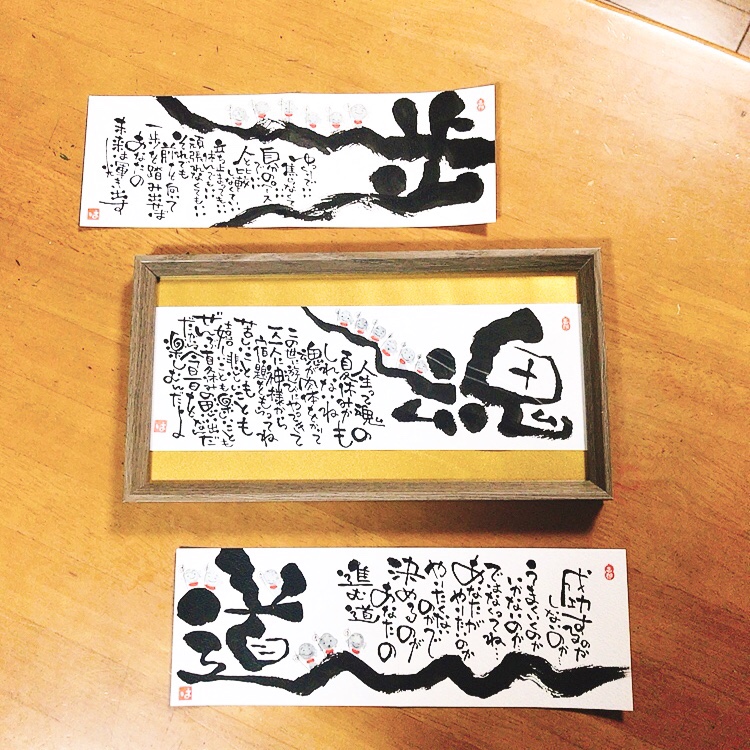 歩
ゆっくりでいい
焦らなくていい
自分のペースでいい
人と比較しなくていい
立ち止まってもいい
休んでもいい
頑張れなくてもいい
それでも
前を向いて
一歩を踏み出せば
あなたの
未来は輝き出す
魂
人生って魂の
夏休みかも
しれないね
魂が肉体をかりて
この世に遊びにやってきて
一人一人に神様から
宿題をもらってね
苦しいことも
悲しいことも
嬉しいことも楽しいことも
ぜんぶ夏休みの思い出だ
だから今日も
楽しむんだよ
成功するのか
しないのか…
うまくいくのか
いかないのか…
ではなくってね…
あなたが
やりたいのか
やりたくない
のかで
決めるのが
あなたの
進む道
道